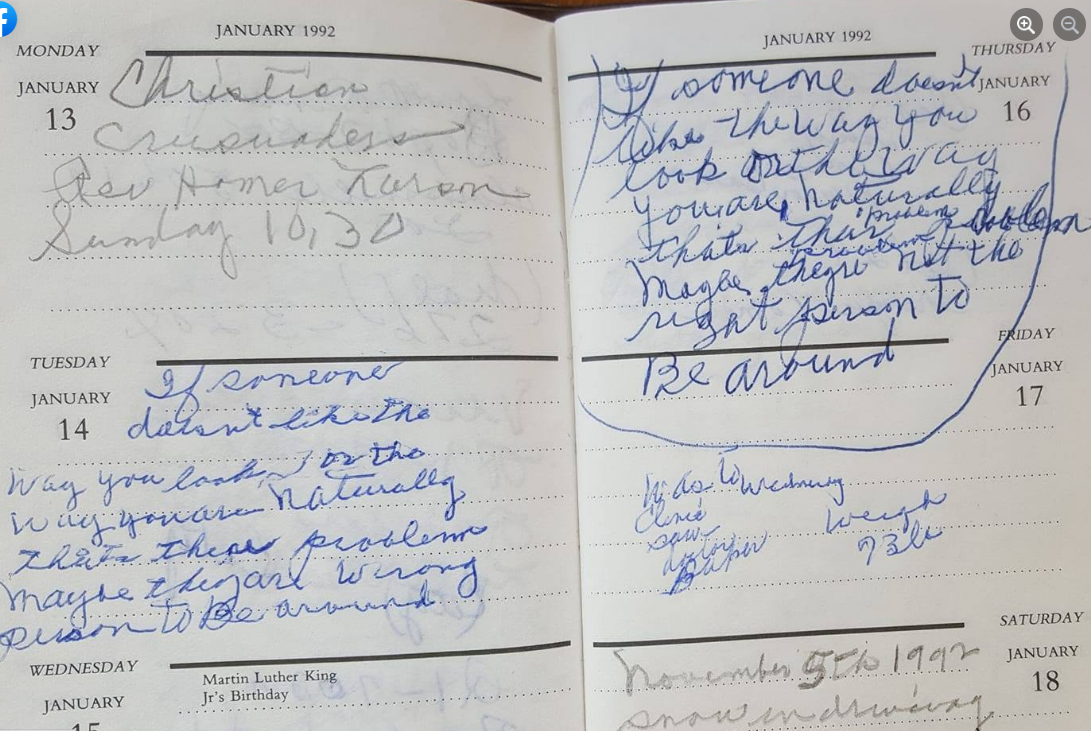 JANUARY 1992
MONDAY
JANUARY
13
Christian
Crusuaders
Rev Homer Larson
Sunday 10,30
TUESDAY
JANUARY
14
If someone
doesn't like the
way you look, or the
way you are naturally
that's there problem
Maybe they are wrong
person to Be around
WEDNESDAY
JANUARY
15
Martin Luther King
Jr's Birthday
JANUARY 1992
THURSDAY
JANUARY
16
If someone doesn't
like the way you
look or the way
you are, naturally
thats their problem
problem
problem
Maybe they're not the
right person to
Be around
FRIDAY
JANUARY
17
Was to Wednesday
Clinic
saw
doctor
Weigh
73lb
SATURDAY
JANUARY
18
November 5th 1992
snow in driveway